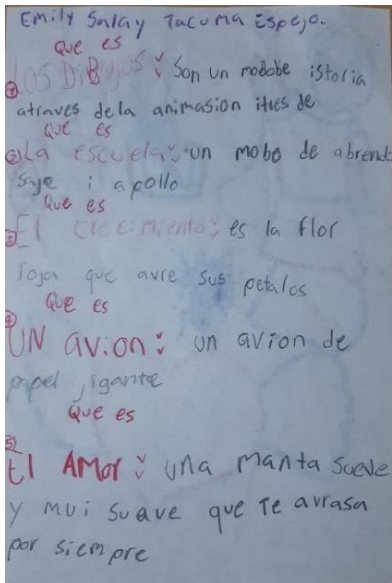 Emily Saray Tacuma Espejo.
que es
① LOS DiBUJOS: Son un modobe istoria
atraves dela animasion itres de
que es
② La escuela: un mobo de abrendi
saje i apollo
Que es
③ El crecimiento: es la flor
roja que avre sus petalos
Que es
④ UN avion: un avion de
papel jigante
Que es
⑤ El AMor: una manta sueve
y mui suave que Te avrasa
por siempre